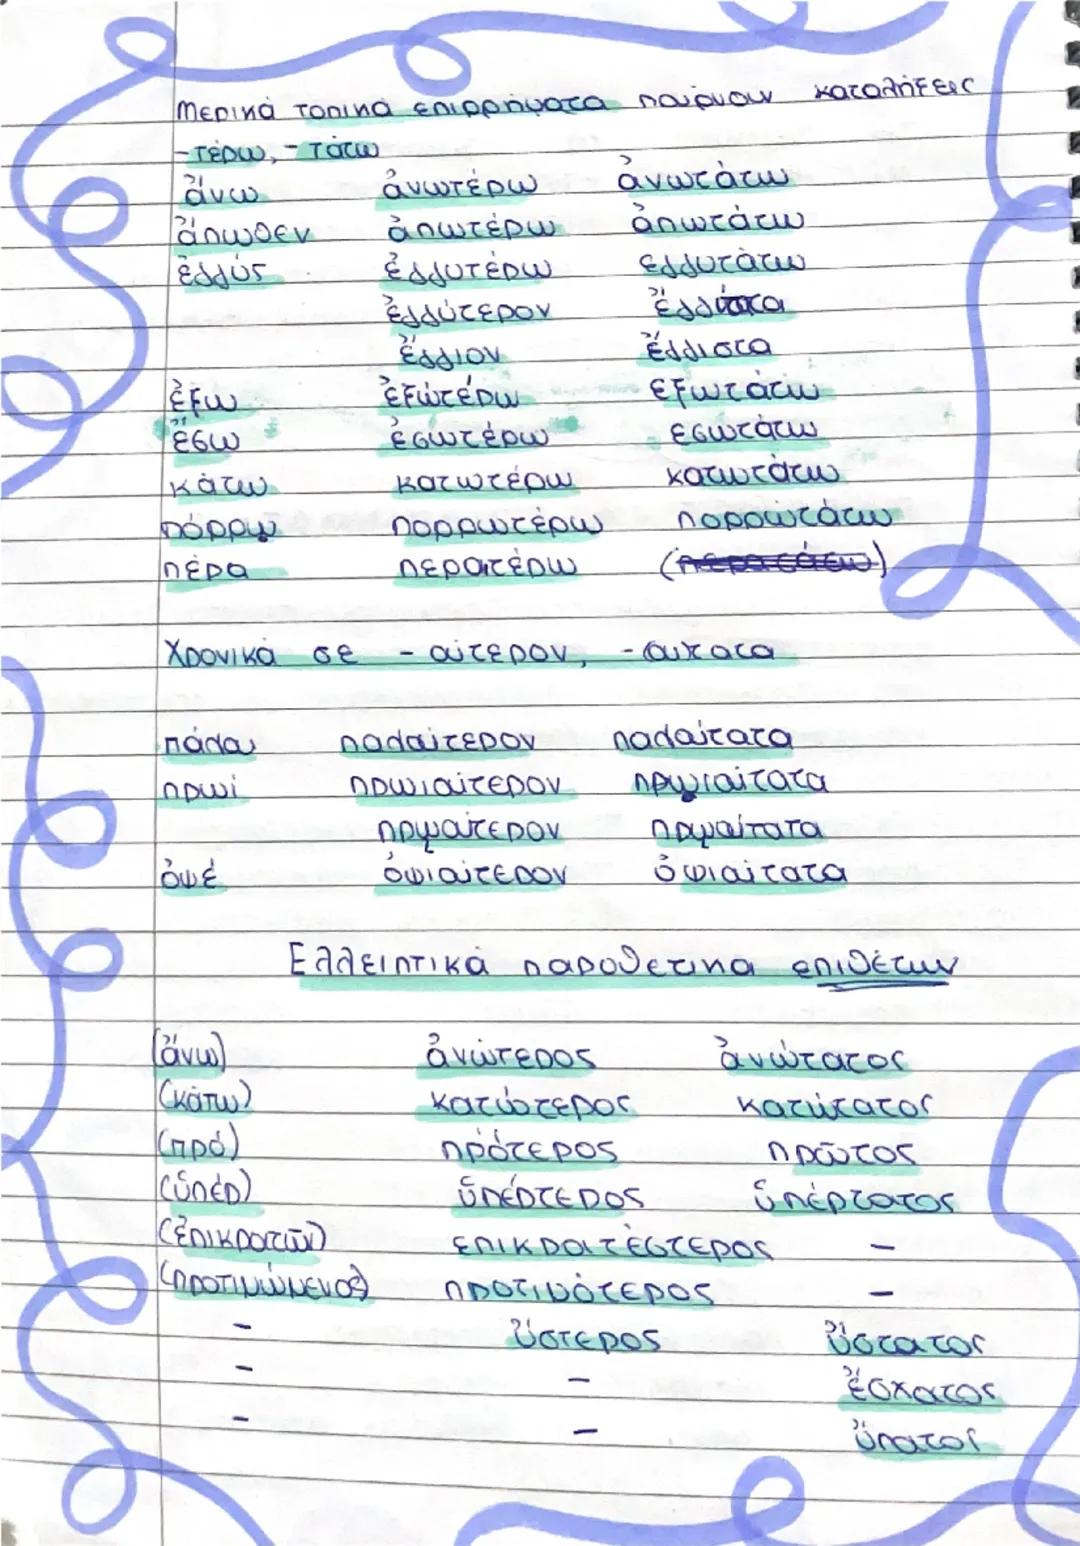 Μερικά τοπικά επιρρήματα παίρνουν καταλήξεις
-τέρω, -τάτω
ἄνω ἀνωτέρω ἀνωτάτω
ἄπωθεν ἀπωτέρω ἀπωτάτω
ἐγγύς ἐγγυτέρω εγγυτάτω
ἐγγύτερον ἐγγύτατα
ἔγγιον ἔγγιστα
ἔξω ἐξωτέρω εξωτάτω
ἔσω ἐσωτέρω εσωτάτω
κάτω κατωτέρω κατωτάτω
πόρρω πορρωτέρω πορρωτάτω
πέρα περαιτέρω (περατάτω)
Χρονικά σε -αίτερον, -αίτατα
πάλαι παλαίτερον παλαίτατα
πρωί πρωιαίτερον πρωιαίτατα
πρῳαίτερον πρῳαίτατα
ὀψέ ὀψιαίτερον ὀψιαίτατα
Ελλειπτικά παραθετικά επιθέτων
(ἄνω) ἀνώτερος ἀνώτατος
(κάτω) κατώτερος κατώτατος
(πρό) πρότερος πρῶτος
(ὑπέρ) ὑπέρτερος ὑπέρτατος
(ἐπικρατῶν) επικρατέστερος -
(προτιμώμενος) προτιμότερος -
- ὕστερος ὕστατος
- - ἔσχατος
- - ὕπατος